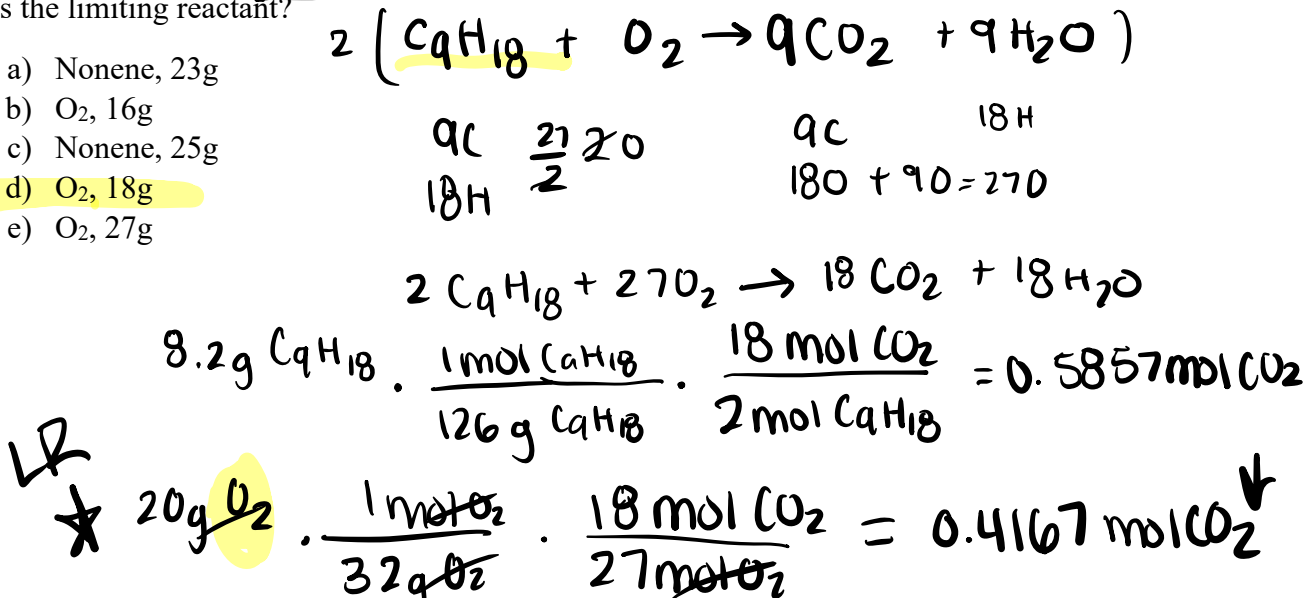 s the limiting reactant?
2 ( C9H18 + O2 → 9CO2 + 9H2O )
a) Nonene, 23g
b) O2, 16g
c) Nonene, 25g
d) O2, 18g
e) O2, 27g
9C 27/2 2O 9C 18H
18H 18O + 9O = 27O
2 C9H18 + 27O2 → 18 CO2 + 18 H2O
8.2g C9H18 · 1 mol C9H18 / 126 g C9H18 · 18 mol CO2 / 2 mol C9H18 = 0.5857 mol CO2
LR
★ 20g O2 · 1 mol O2 / 32g O2 · 18 mol CO2 / 27 mol O2 = 0.4167 mol CO2 ↓